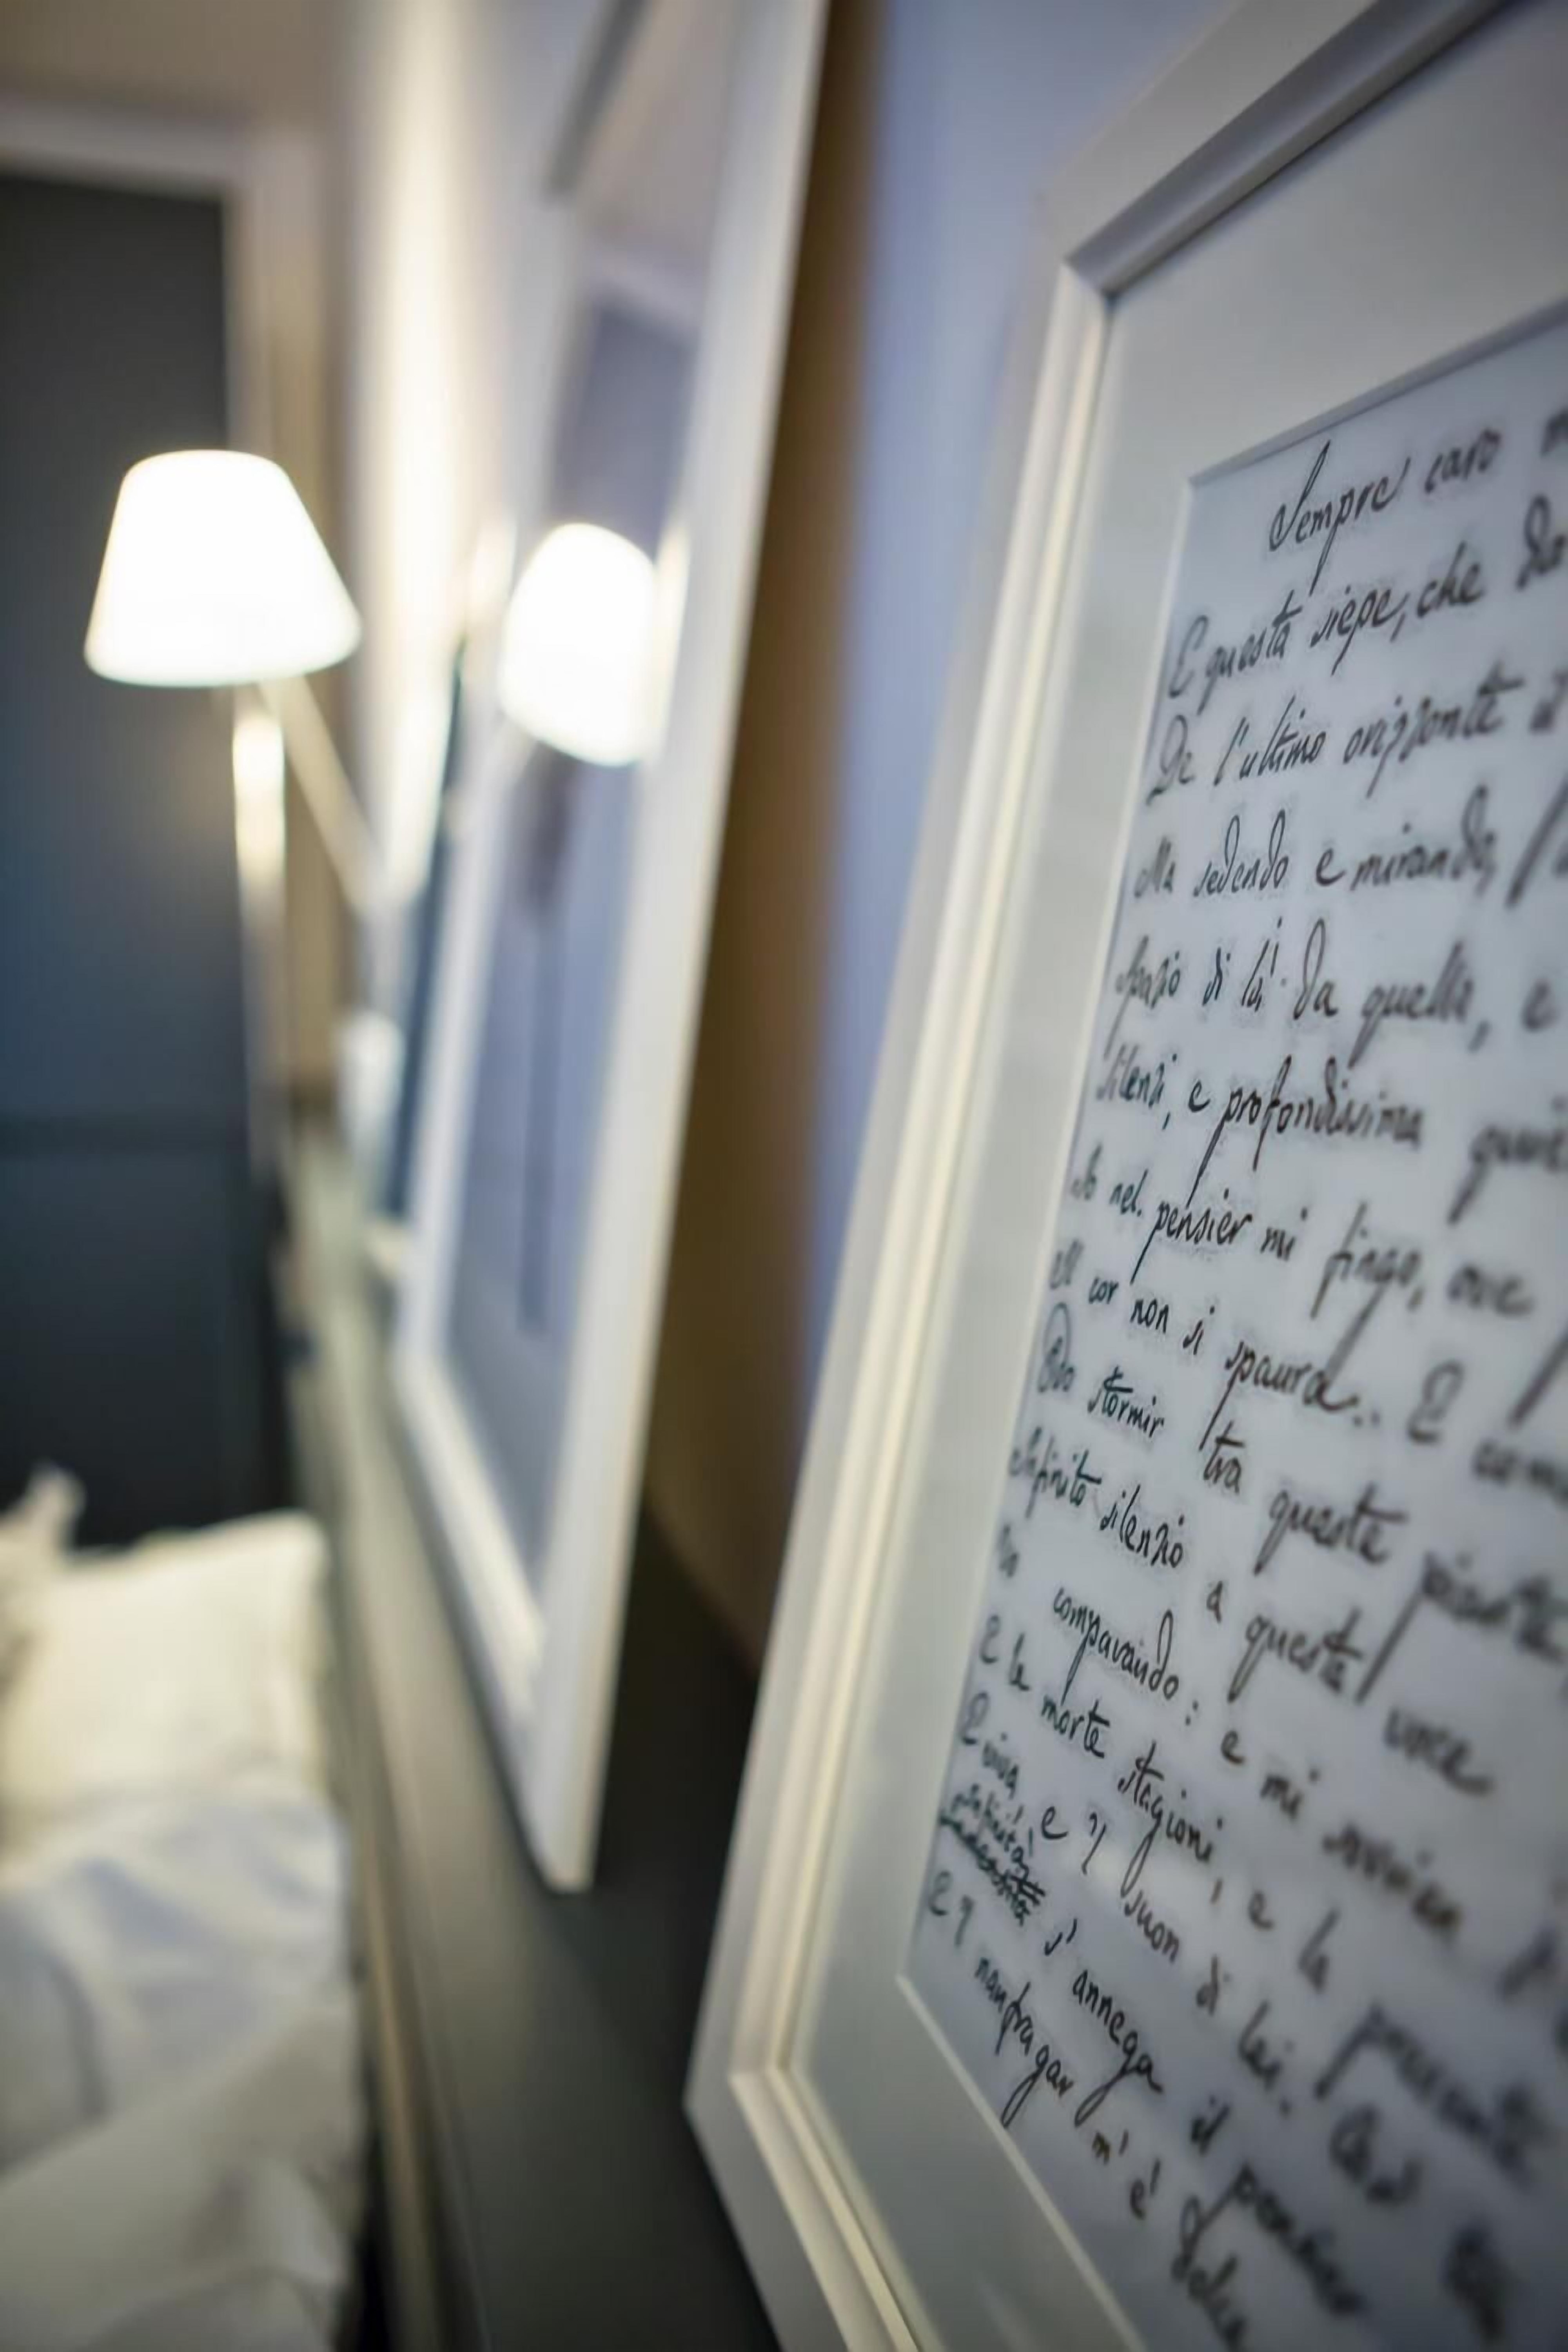 Sempre caro
E questa siepe, che da
De l'ultimo orizzonte il
Ma sedendo e mirando,
spazio di là da quella, e
silenzi, e profondissima quie
Io nel pensier mi fingo, ove
Il cor non si spaura. E come
Odo stormir tra queste piante
Infinito silenzio a questa voce
Vo comparando: e mi sovvien
E le morte stagioni, e la presente
E viva, e 'l suon di lei. Così
Infinità
s'annega il pensier
E 'l naufragar m'è dolce